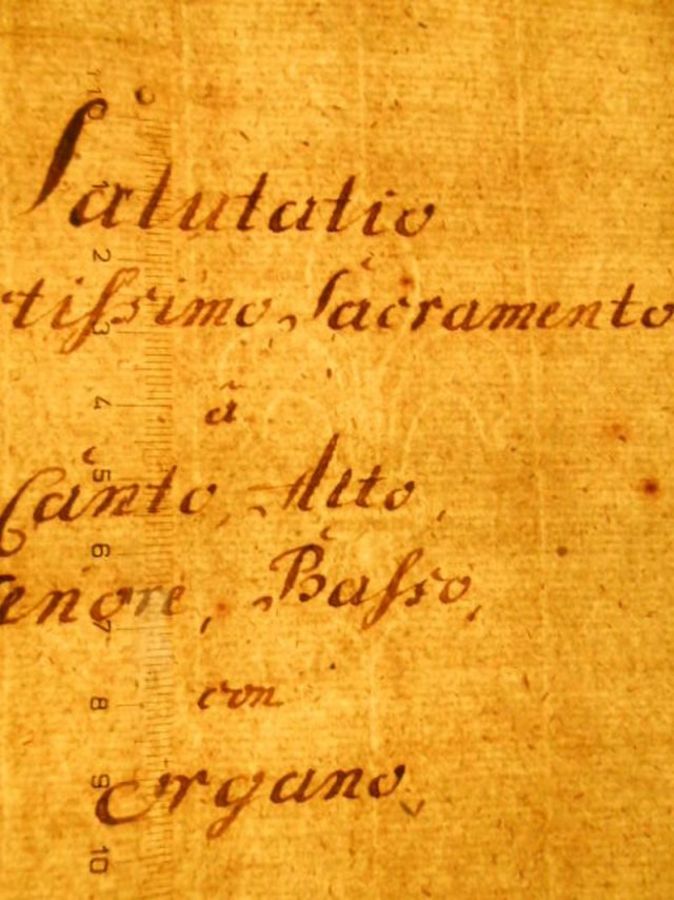 Salutatio
tissimo Sacramento
à
Canto, Alto,
Tenore, Basso,
con
Organo